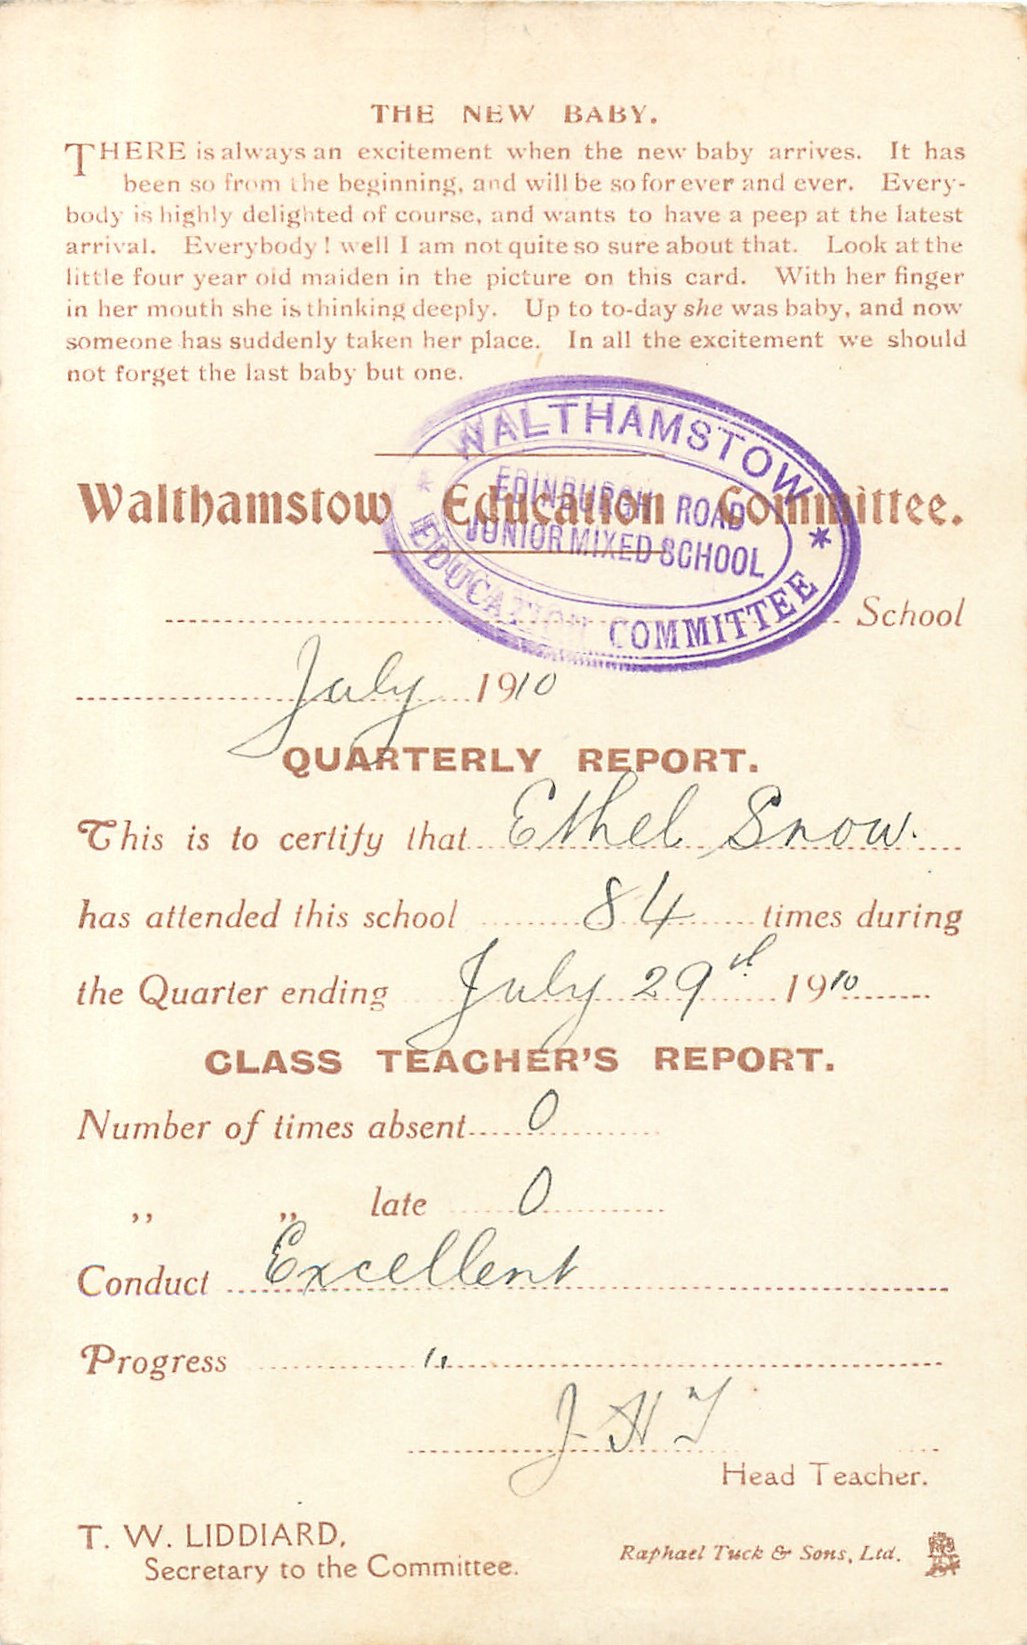 THE NEW BABY.
THERE is always an excitement when the new baby arrives. It has
been so from the beginning, and will be so for ever and ever. Every-
body is highly delighted of course, and wants to have a peep at the latest
arrival. Everybody! well I am not quite so sure about that. Look at the
little four year old maiden in the picture on this card. With her finger
in her mouth she is thinking deeply. Up to to-day she was baby, and now
someone has suddenly taken her place. In all the excitement we should
not forget the last baby but one.
* WALTHAMSTOW *
EDINBURGH ROAD
JUNIOR MIXED SCHOOL
EDUCATION COMMITTEE
Walthamstow Education Committee.
School
July 1910
QUARTERLY REPORT.
This is to certify that Ethel Snow.
has attended this school 84 times during
the Quarter ending July 29th 1910
CLASS TEACHER'S REPORT.
Number of times absent 0
,, ,, late 0
Conduct Excellent
Progress ,,
J. H T
Head Teacher.
T. W. LIDDIARD,
Secretary to the Committee.
Raphael Tuck & Sons, Ltd.